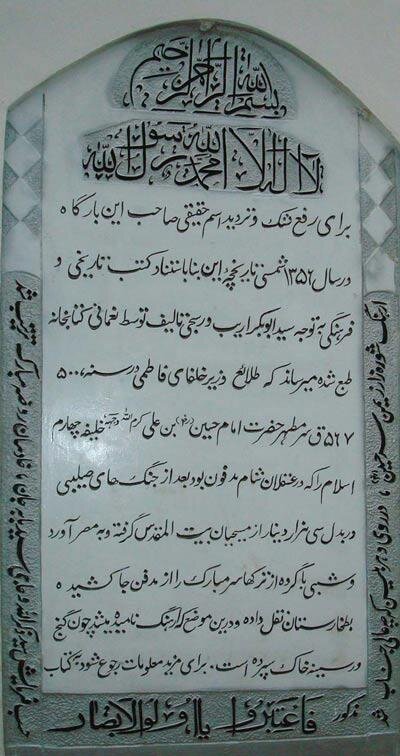 بسم الله الرحمن الرحیم
لا اله الا الله محمد رسول الله
برای رفع شک و تردید اسم حقیقی صاحب این بارگاه
در سال ۱۳۵۶ شمسی تاریخچهٔ این بنا باستناد کتب تاریخی و
فرهنگی به توجه سید ابوبکر اریب و رسجی تالیف توسط نعمانی کتابخانه
طبع شده میرساند که طلائع وزیر خلفای فاطمی در سنه ۵۰۰،
۵۶۷ ق سر مطهر حضرت امام حسین (رض) بن علی کرم الله وجهه خلیفه چهارم
اسلام را که در عسقلان شام مدفون بود بعد از جنگ های صلیبی
در بدل سی هزار دینار از مسیحیان بیت المقدس گرفته و به مصر آورد
و شبی با گرده از نرکها سر مبارک را از مدفن جا کشیده
بطخارستان نقل داده و درین موضع که ارهنگ نامیده میشد چون گنج
در سینه خاک سپرده است. برای مزید معلومات رجوع شود به کتاب
مذکور
فاعتبروا یا اولو الابصار
ارهنگ شود راز زمین سر حسین